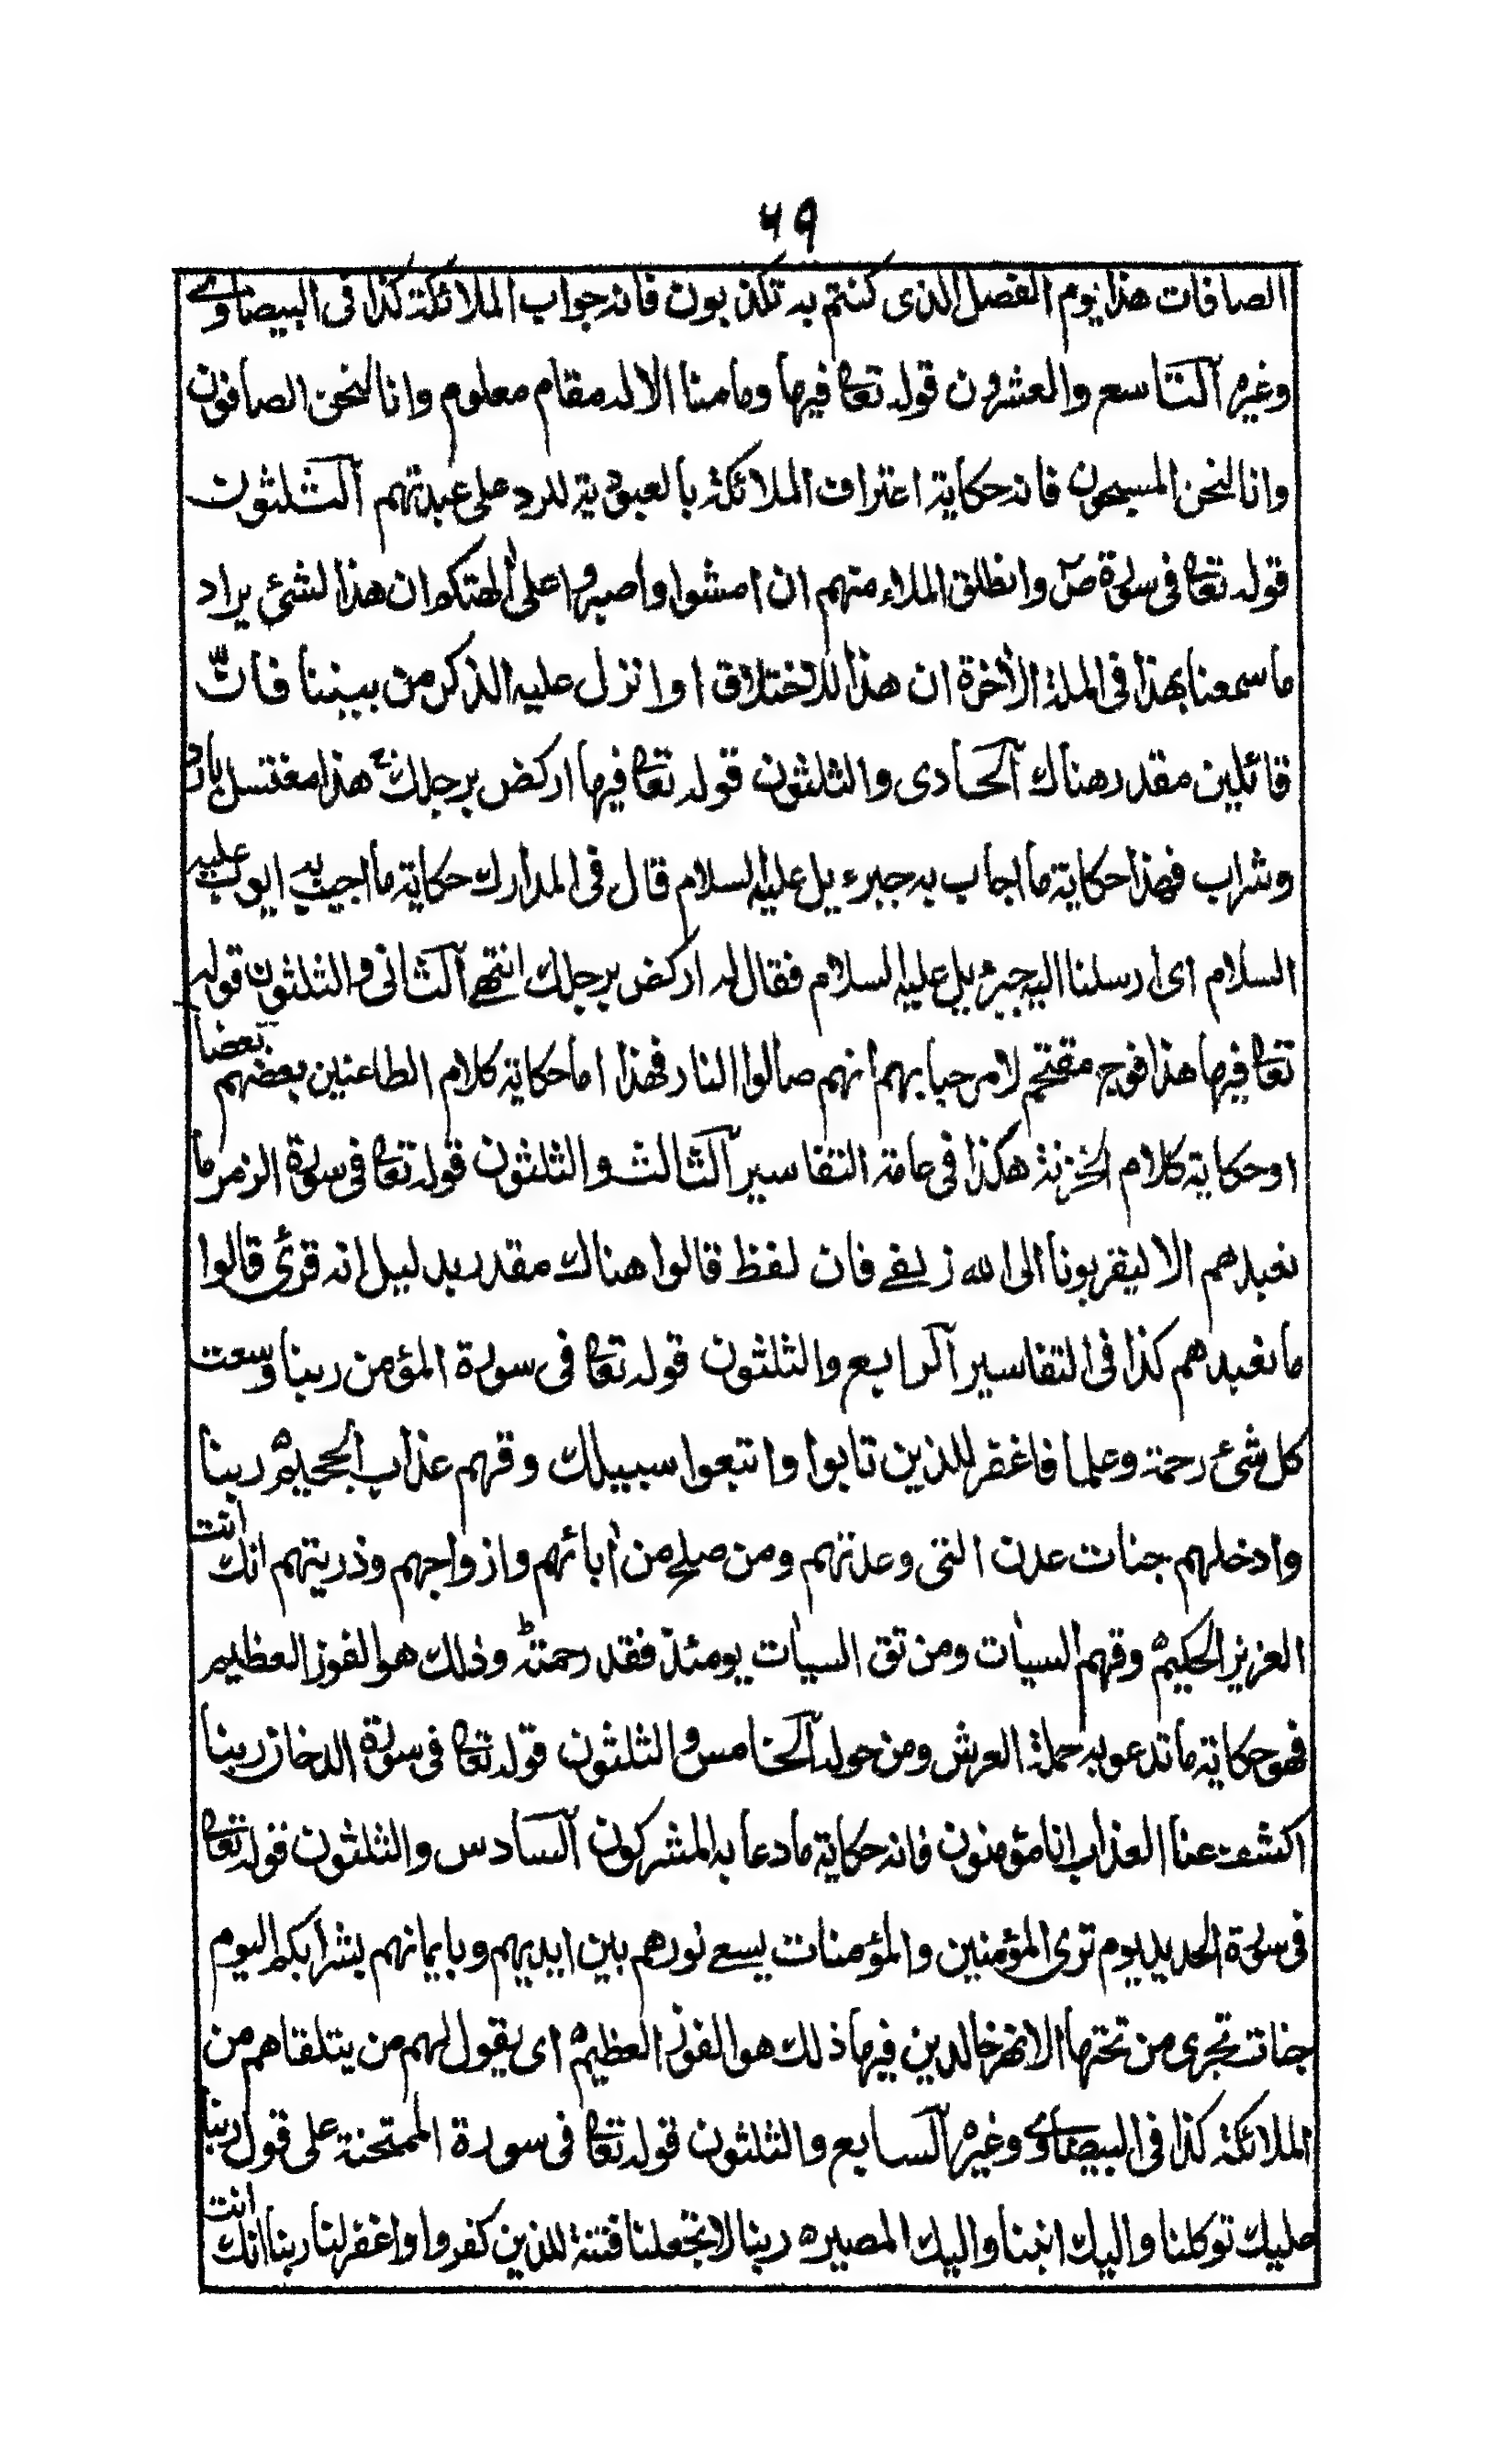 ٦٩
الصافات هذا يوم الفصل الذى كنتم به تكذبون فانه جواب الملائكة كذا فى البيضاوے
وغيره التاسع والعشرون قوله تعا فيها ومامنا الا له مقام معلوم وانا لنحن الصافون
وانا لنحن المسبحون فانه حكاية اعتراف الملائكة بالعبودية للرد على عبدتهم الثلثون
قوله تعا فى سورة صٓ وانطلق الملاء منهم ان امشوا واصبروا على الهتكم ان هذا لشئ يراد
ماسمعنا بهذا فى الملة الأخرة ان هذا الا اختلاق اوانزل عليه الذكر من بيننا فانّ
قائلين مقدر هناك الحادى والثلثون قوله تعا فيها اركض برجلك هذا مغتسل بارد
وشراب فهذا حكاية ما اجاب به جبرءيل عليه السلام قال فى المدارك حكاية ما اجيب به ايوب عليه
السلام اى ارسلنا اليه جبرءيل عليه السلام فقال له اركض برجلك انتهے الثانى والثلثون قوله
تعا فيها هذا فوج مقتحم لامرحبا بهم انهم صالوا النار فهذا اما حكاية كلام الطاغين بعضهم بعضا
اوحكاية كلام الخزنة هكذا فى عامة التفاسير الثالث والثلثون قوله تعا فى سورة الزمر ما
نعبدهم الا ليقربونا الى الله زلفے فان لفظ قالوا هناك مقدر بدليل انه قرئ قالوا
ما نعبدهم كذا فى التفاسير الرابع والثلثون قوله تعا فى سورة المؤمن ربنا وسعت
كل شئ رحمة وعلما فاغفر للذين تابوا واتبعوا سبيلك وقهم عذاب الجحيم ربنا
وادخلهم جنات عدن التى وعدتهم ومن صلح من أبائهم وازواجهم وذريتهم انك انت
العزيز الحكيم وقهم السيأت ومن تق السيأت يومئذ فقد رحمته وذلك هو الفوز العظيم
فهو حكاية ما تدعو به حملة العرش ومن حوله الخامس والثلثون قوله تعا فى سورة الدخان ربنا
اكشف عنا العذاب انا مؤمنون فانه حكاية مادعا به المشركون السادس والثلثون قوله تعا
فى سورة الحديد يوم ترى المؤمنين والمؤمنات يسعے نورهم بين ايديهم وبايمانهم بشرابكم اليوم
جنات تجرى من تحتها الانهر خالدين فيها ذلك هو الفوز العظيم اى يقول لهم من يتلقاهم من
الملائكة كذا فى البيضاوے وغيره السابع والثلثون قوله تعا فى سورة الممتحنة على قول ربنا
عليك توكلنا واليك انبنا واليك المصير ربنا لا تجعلنا فتنة للذين كفروا واغفر لنا ربنا انك انت